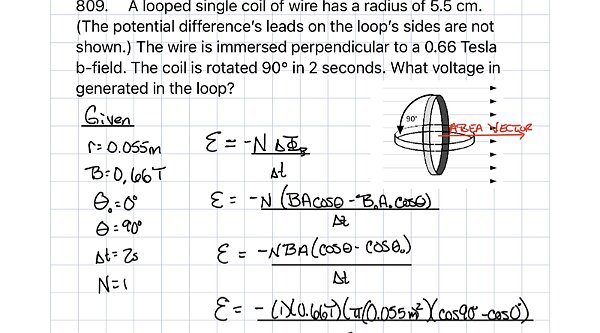 809. A looped single coil of wire has a radius of 5.5 cm.
(The potential difference's leads on the loop's sides are not
shown.) The wire is immersed perpendicular to a 0.66 Tesla
b-field. The coil is rotated 90° in 2 seconds. What voltage in
generated in the loop?
Given
r = 0.055m
B = 0.66T
θ₀ = 0°
θ = 90°
Δt = 2s
N = 1
90°
AREA VECTOR
ε = -N ΔΦ_B
Δt
ε = -N (BAcosθ - B₀A₀cosθ)
Δt
ε = -NBA(cosθ - cosθ₀)
Δt
ε = -(1)(0.66T)(π(0.055m²)(cos90° - cos0°)